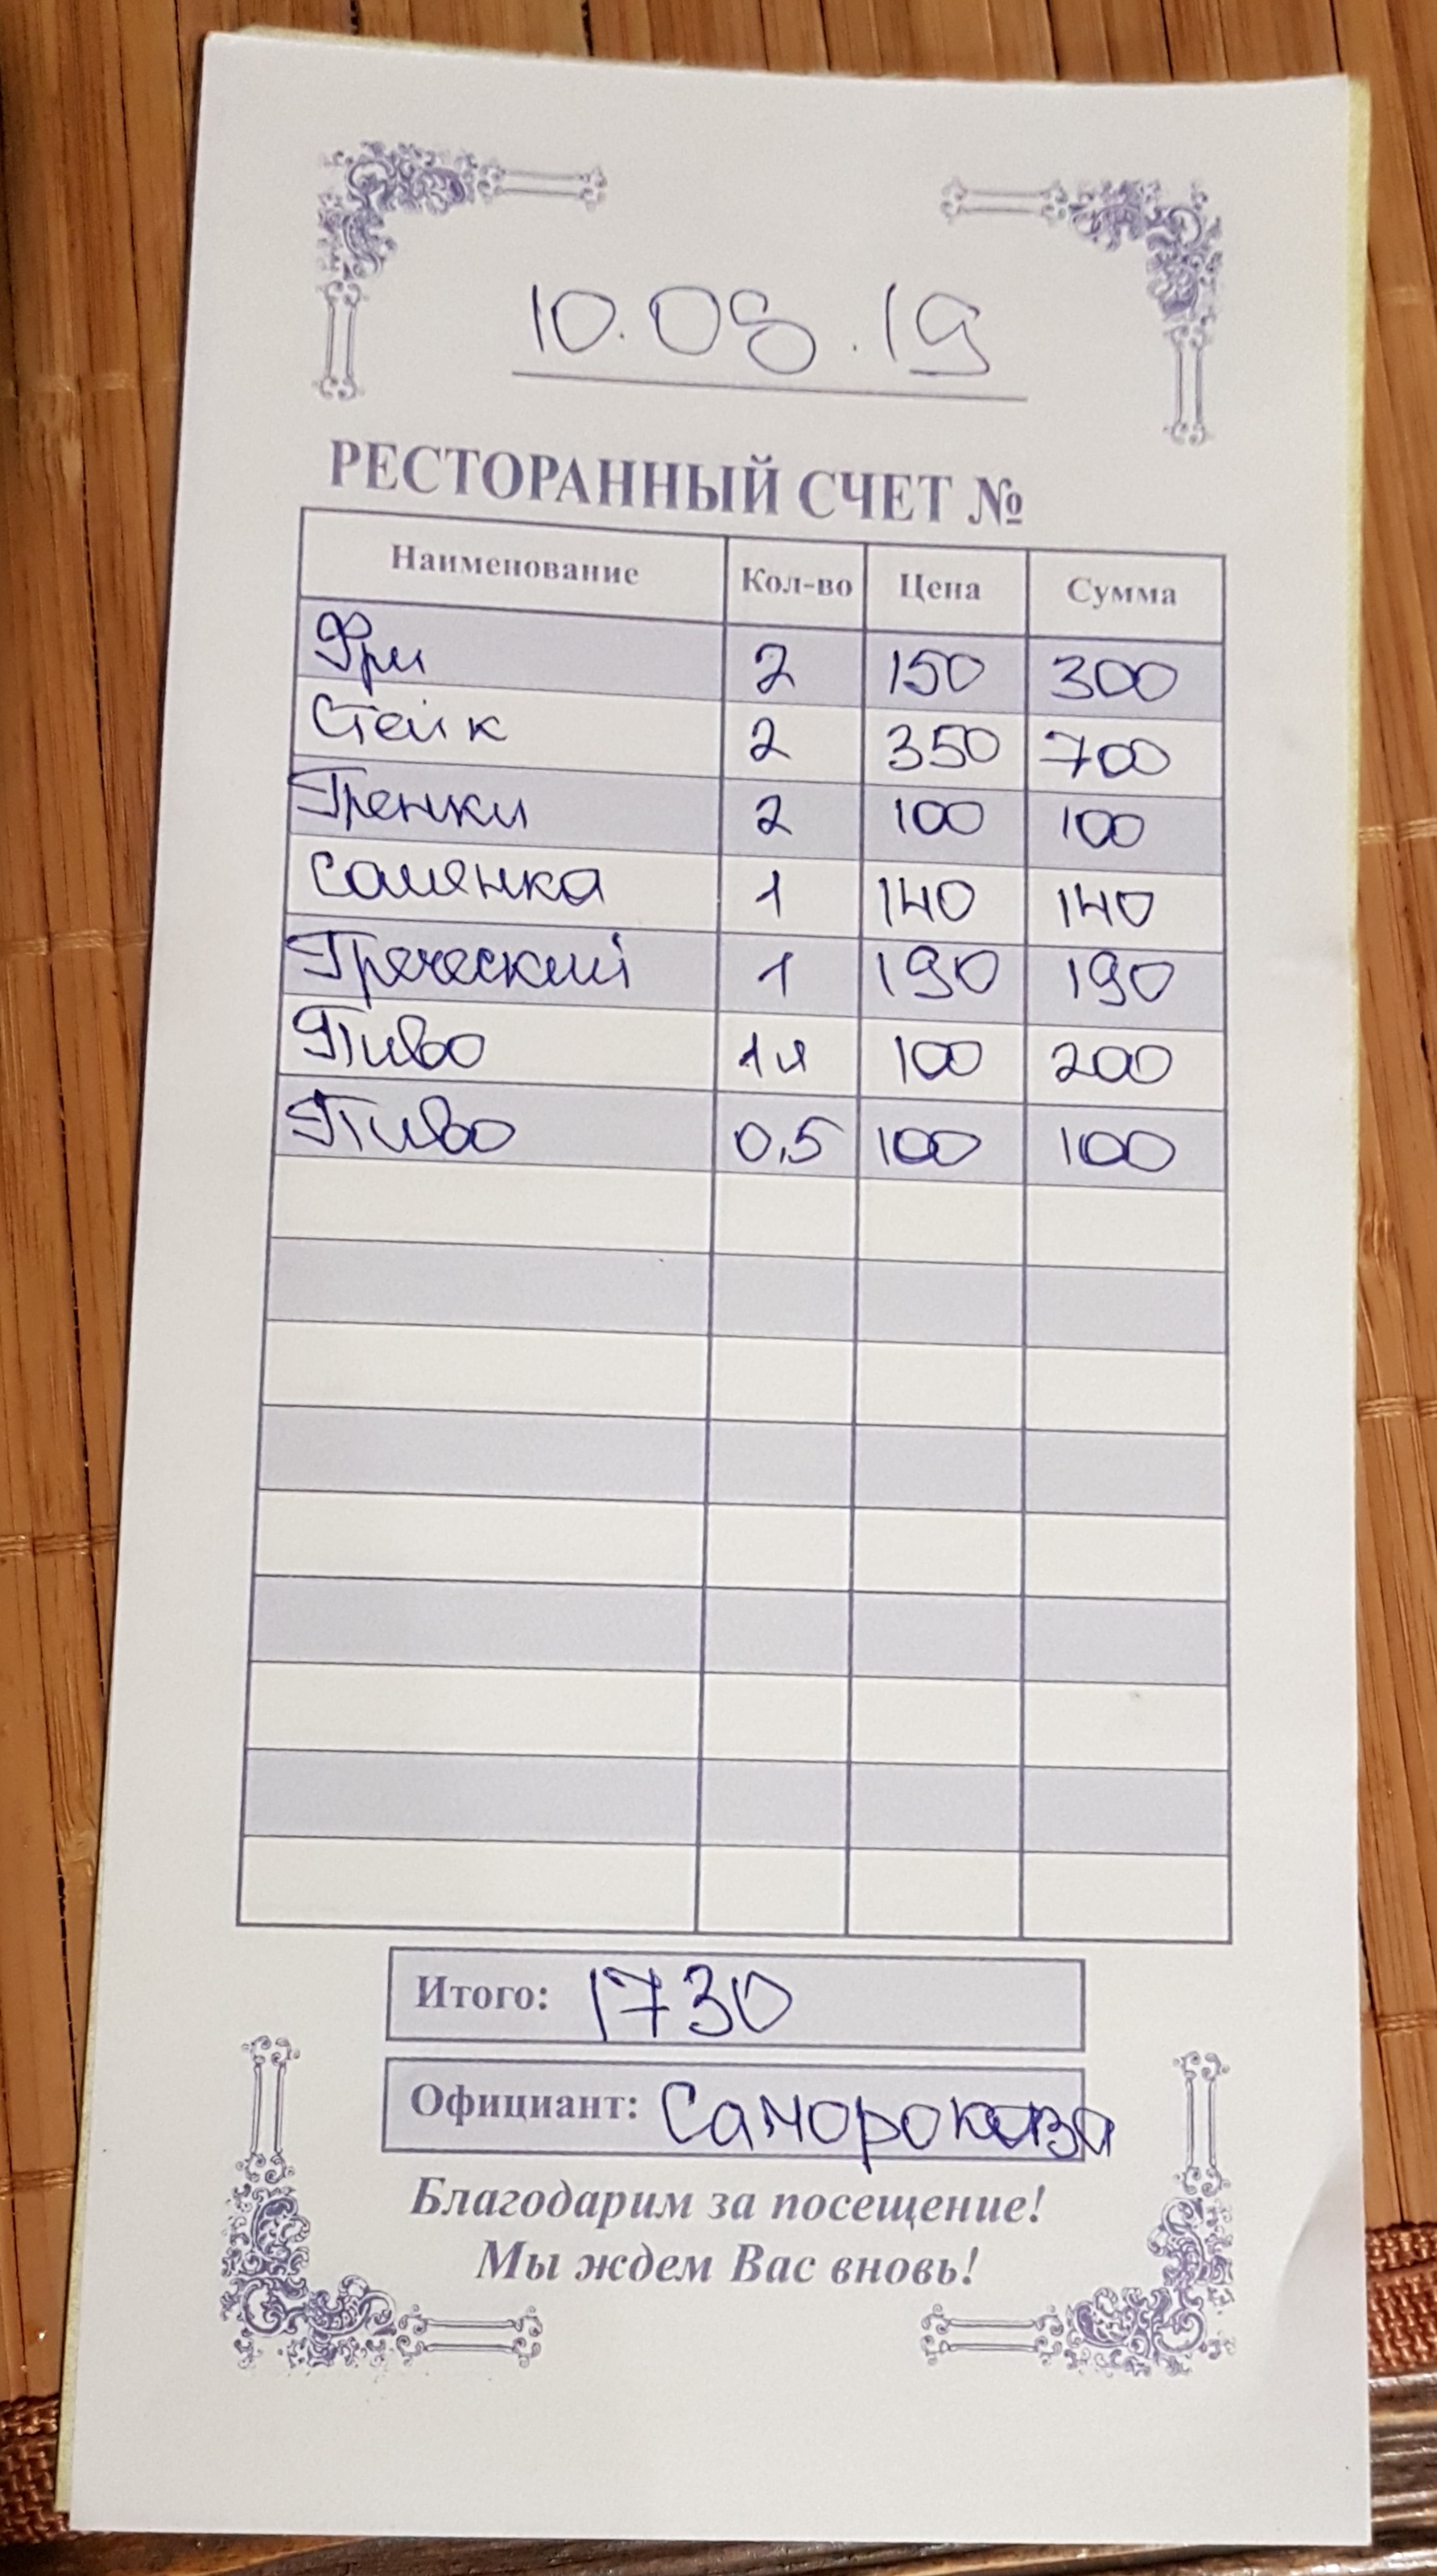 10.08.19
РЕСТОРАННЫЙ СЧЕТ №
Наименование Кол-во Цена Сумма
Фри 2 150 300
Стейк 2 350 700
Гренки 2 100 100
Солянка 1 140 140
Греческий 1 190 190
Пиво 1л 100 200
Пиво 0,5 100 100
Итого: 1730
Официант:
Благодарим за посещение!
Мы ждем Вас вновь!